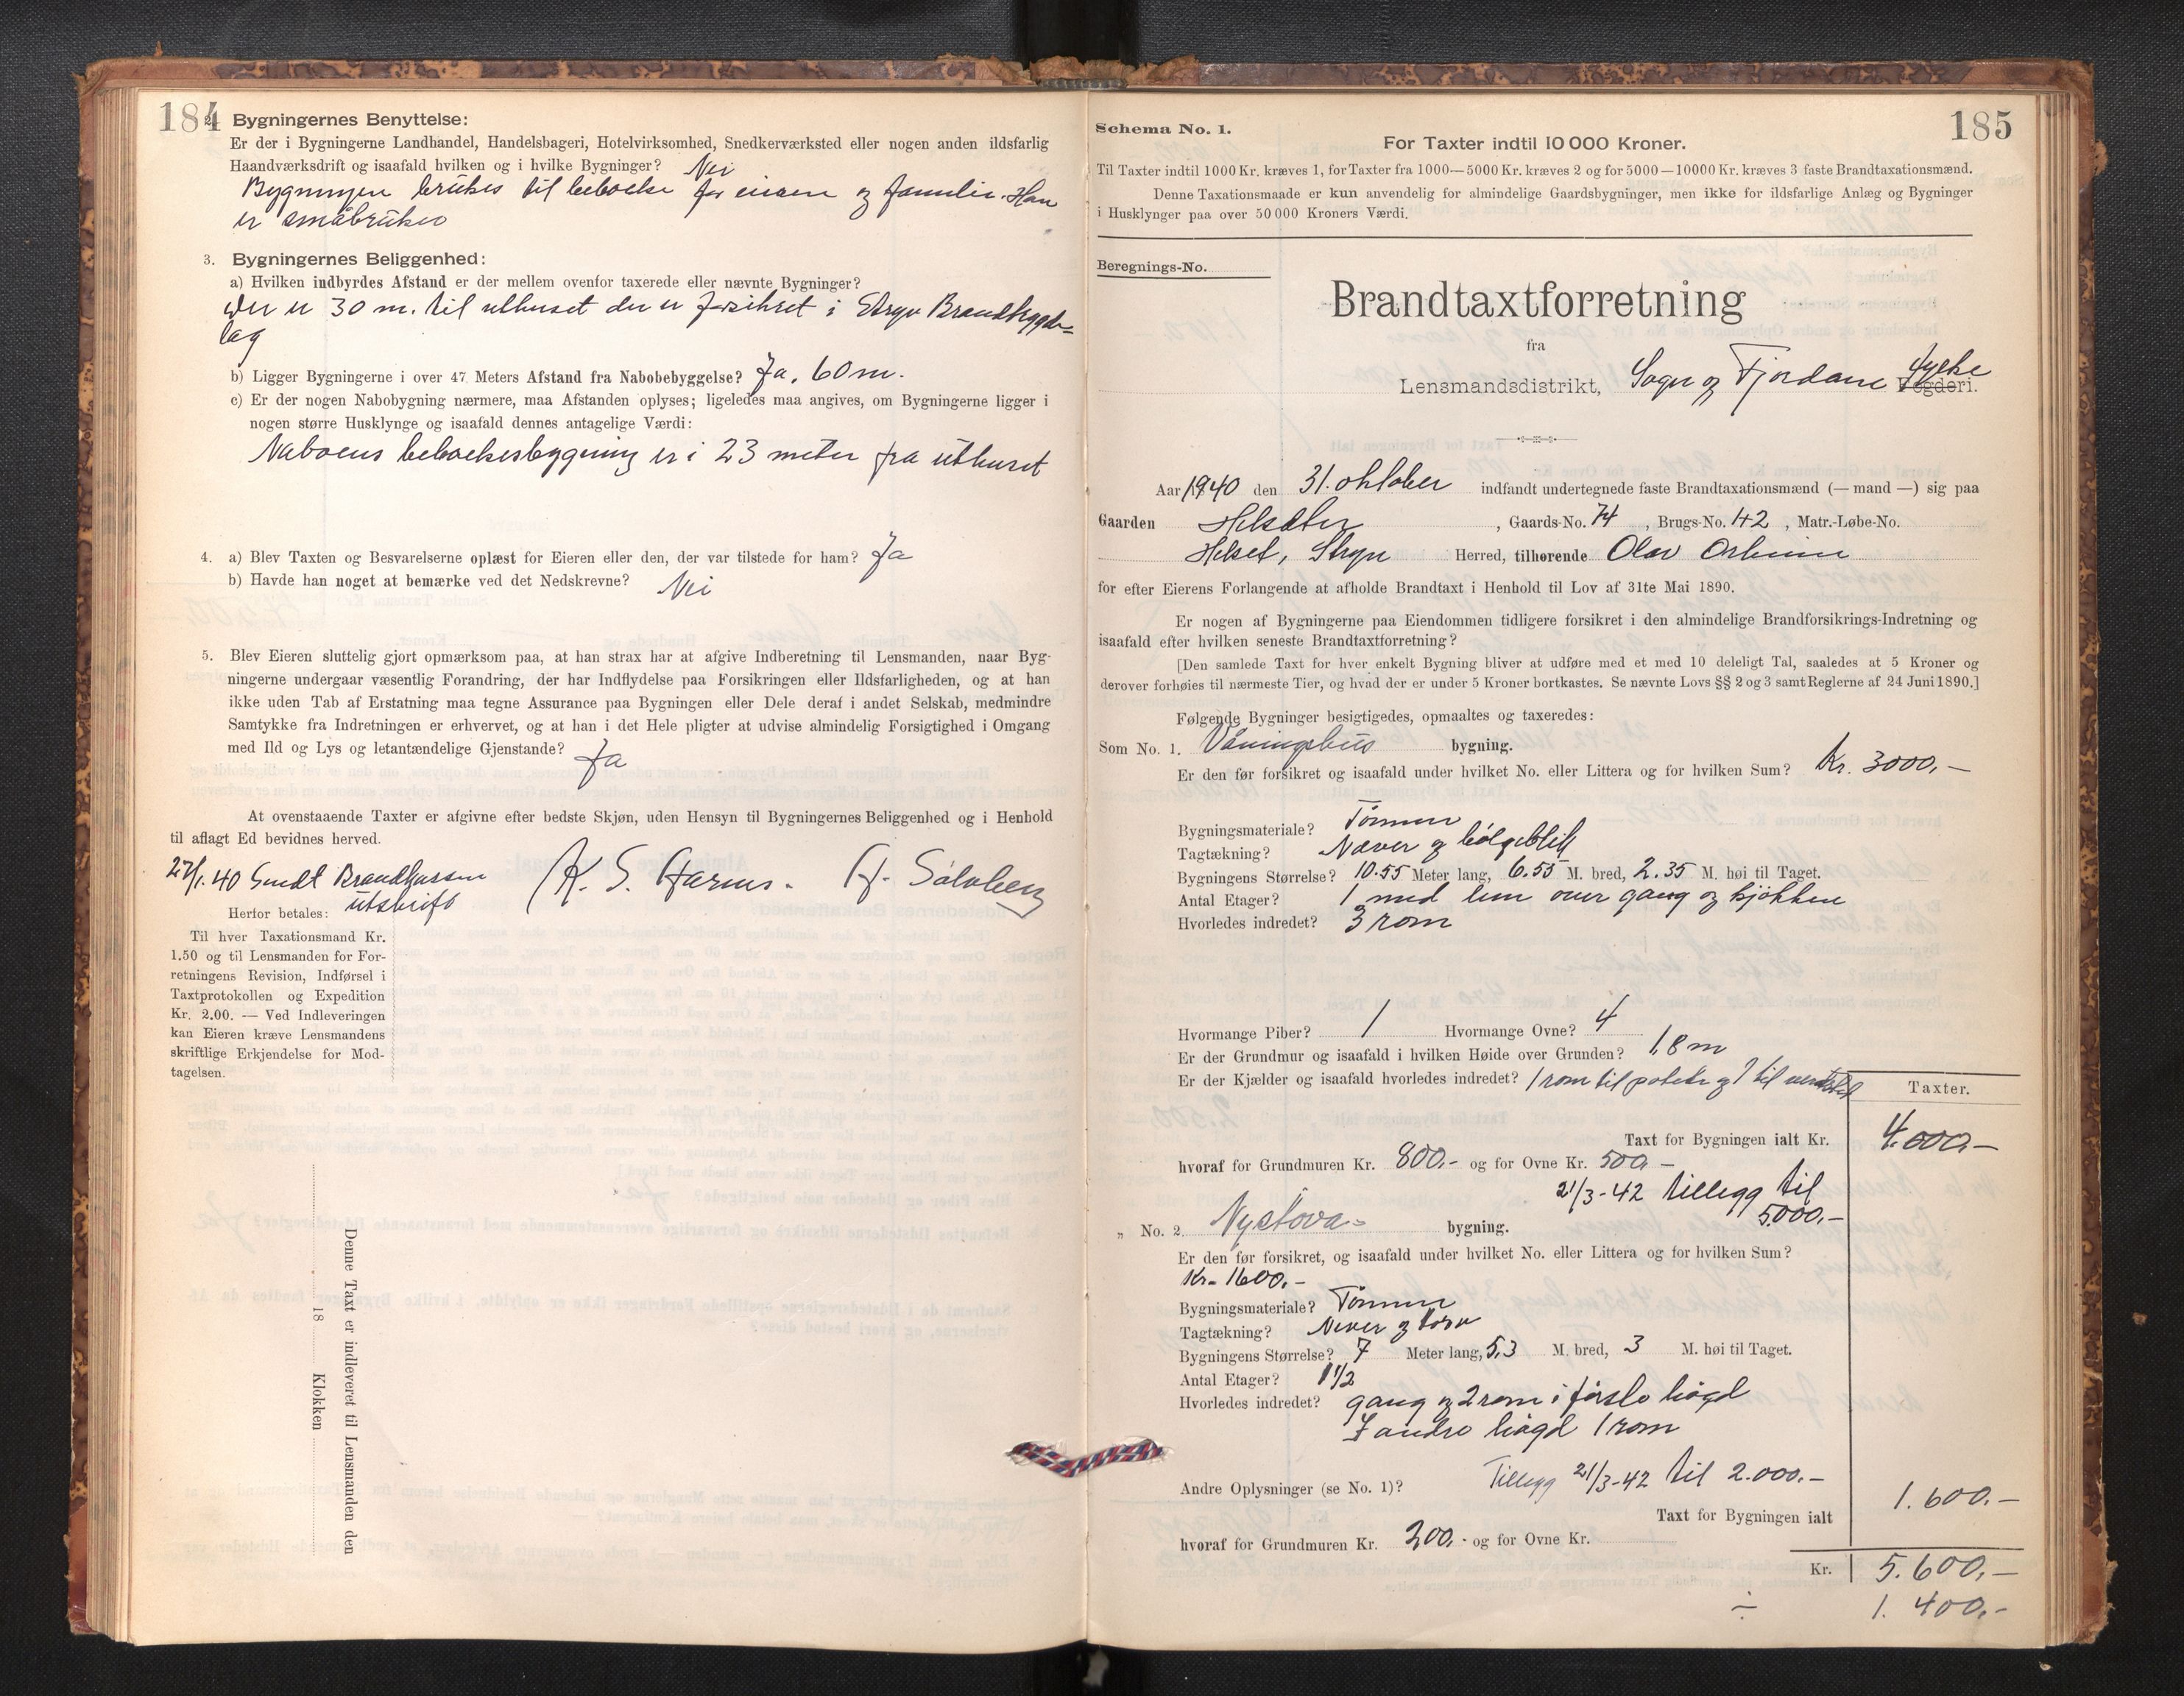 184
2. Bygningernes Benyttelse:
Er der i Bygningerne Landhandel, Handelsbageri, Hotelvirksomhed, Snedkerværksted eller nogen anden ildsfarlig
Haandværksdrift og isaafald hvilken og i hvilke Bygninger? Nei
Bygningen brukes til beboelse for eieren og familie. Han
er småbruker
3. Bygningernes Beliggenhed:
a) Hvilken indbyrdes Afstand er der mellem ovenfor taxerede eller nævnte Bygninger?
Der er 30 m. til uthuset der er forsikret i Stryn Brandbygde-
lag
b) Ligger Bygningerne i over 47 Meters Afstand fra Nabobebyggelse? Ja. 60 m.
c) Er der nogen Nabobygning nærmere, maa Afstanden oplyses; ligeledes maa angives, om Bygningerne ligger i
nogen større Husklynge og isaafald dennes antagelige Værdi:
Naboens beboelsesbygning er i 23 meter fra uthuset
4. a) Blev Taxten og Besvarelserne oplæst for Eieren eller den, der var tilstede for ham? Ja
b) Havde han noget at bemærke ved det Nedskrevne? Nei
5. Blev Eieren sluttelig gjort opmærksom paa, at han strax har at afgive Indberetning til Lensmanden, naar Byg-
ningerne undergaar væsentlig Forandring, der har Indflydelse paa Forsikringen eller Ildsfarligheden, og at han
ikke uden Tab af Erstatning maa tegne Assurance paa Bygningen eller Dele deraf i andet Selskab, medmindre
Samtykke fra Indretningen er erhvervet, og at han i det Hele pligter at udvise almindelig Forsigtighed i Omgang
med Ild og Lys og letantændelige Gjenstande? Ja
At ovenstaaende Taxter er afgivne efter bedste Skjøn, uden Hensyn til Bygningernes Beliggenhed og i Henhold
til aflagt Ed bevidnes herved.
27/1.40 Sendt Brandkassen K. S. H. Sølvberg
utskrift
Herfor betales:
Til hver Taxationsmand Kr.
1.50 og til Lensmanden for For-
retningens Revision, Indførsel i
Taxtprotokollen og Expedition
Kr. 2.00. — Ved Indleveringen
kan Eieren kræve Lensmandens
skriftlige Erkjendelse for Mod-
tagelsen.
Denne Taxt er indleveret til Lensmanden den
18 Klokken
185
Schema No. 1.
For Taxter indtil 10 000 Kroner.
Til Taxter indtil 1000 Kr. kræves 1, for Taxter fra 1000—5000 Kr. kræves 2 og for 5000—10000 Kr. kræves 3 faste Brandtaxationsmænd.
Denne Taxationsmaade er kun anvendelig for almindelige Gaardsbygninger, men ikke for ildsfarlige Anlæg og Bygninger
i Husklynger paa over 50 000 Kroners Værdi.
Beregnings-No.
Brandtaxtforretning
fra
Lensmandsdistrikt, Sogn og Fjordane fylke Fogderi.
Aar 1940 den 31. oktober indfandt undertegnede faste Brandtaxationsmænd (— mand —) sig paa
Gaarden Helsæter, Gaards-No. 74, Brugs-No. 1+2, Matr.-Løbe-No.
Helset, Stryn Herred, tilhørende Olav
for efter Eierens Forlangende at afholde Brandtaxt i Henhold til Lov af 31te Mai 1890.
Er nogen af Bygningerne paa Eiendommen tidligere forsikret i den almindelige Brandforsikrings-Indretning og
isaafald efter hvilken seneste Brandtaxtforretning?
[Den samlede Taxt for hver enkelt Bygning bliver at udføre med et med 10 deleligt Tal, saaledes at 5 Kroner og
derover forhøies til nærmeste Tier, og hvad der er under 5 Kroner bortkastes. Se nævnte Lovs §§ 2 og 3 samt Reglerne af 24 Juni 1890.]
Følgende Bygninger besigtigedes, opmaaltes og taxeredes:
Som No. 1. Våningshus bygning.
Er den før forsikret og isaafald under hvilket No. eller Littera og for hvilken Sum? Kr. 3000,—
Bygningsmateriale? Tømmer
Tagtækning? Næver og bølgeblik
Bygningens Størrelse? 10.55 Meter lang, 6.55 M. bred, 2.35 M. høi til Taget.
Antal Etager? 1 med lem over gang og kjøkken
Hvorledes indredet? 3 rom
Hvormange Piber? 1 Hvormange Ovne? 4
Er der Grundmur og isaafald i hvilken Høide over Grunden? 1,8 m
Er der Kjælder og isaafald hvorledes indredet? 1 rom til poteter og 1 til
Taxter.
Taxt for Bygningen ialt Kr. 4.000,—
hvoraf for Grundmuren Kr. 800.- og for Ovne Kr. 500 —
21/3-42 tillegg til
5.000,—
„ No. 2. Nystova bygning.
Er den før forsikret, og isaafald under hvilket No. eller Littera og for hvilken Sum?
Kr. 1600.—
Bygningsmateriale? Tømmer
Tagtækning? Never og torv
Bygningens Størrelse? 7 Meter lang, 5,3 M. bred, 3 M. høi til Taget.
Antal Etager? 1 1/2
Hvorledes indredet? gang og 2 rom i første høgd
I andre høgd 1 rom
Tillegg 21/3-42 til 2.000.—
Andre Oplysninger (se No. 1)?
Taxt for Bygningen ialt 1.600.—
hvoraf for Grundmuren Kr. 200.- og for Ovne Kr.
Kr. 5.600,—
÷ 1.400.-